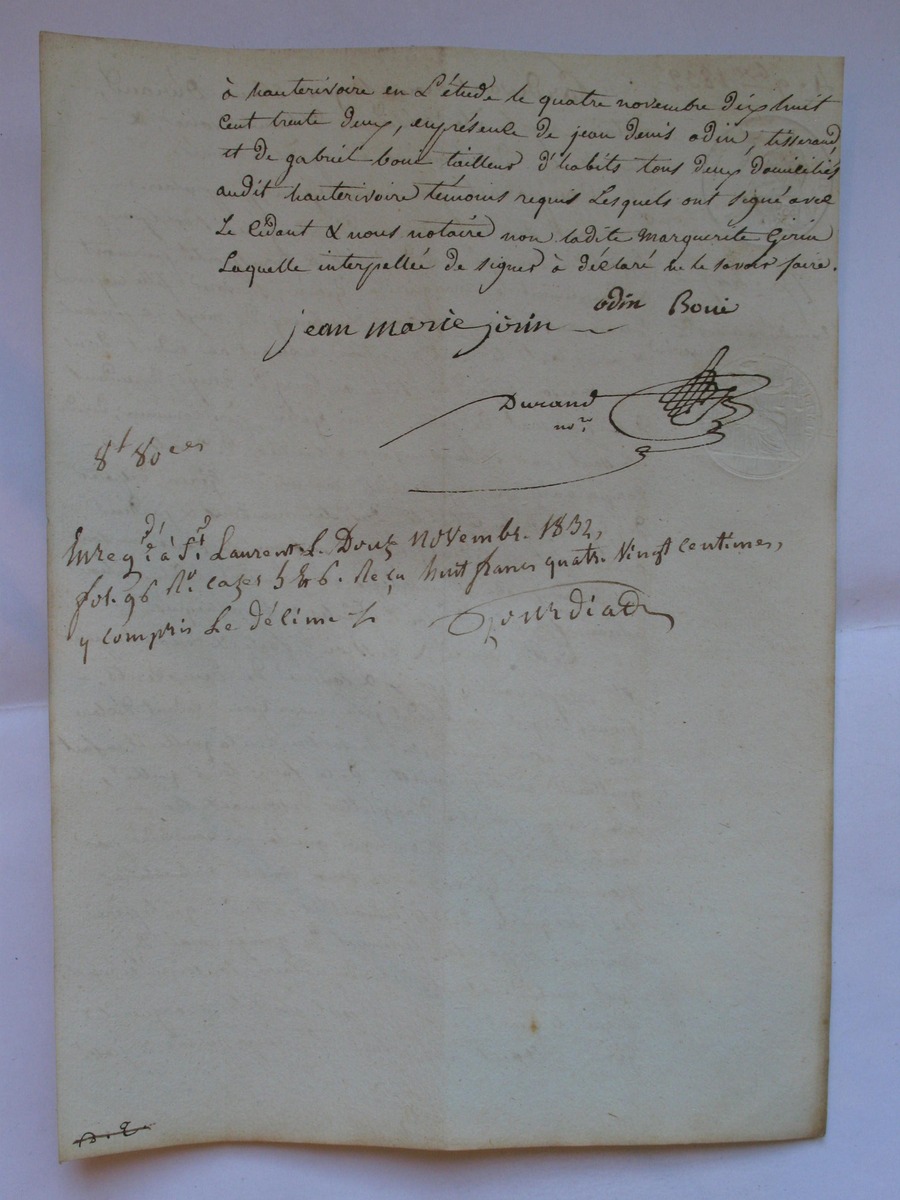 à hauterivoire en L'étude le quatre novembre dix huit
cent trente deux, en présence de jean denis odin, tisserand,
et de gabriel boui tailleur d'habits tous deux domiciliés
audit hauterivoire témoins requis Lesquels ont signé avec
Le cédant & nous notaire non ladite Marguerite Girin
Laquelle interpellée de signer à déclaré ne le savoir faire.
odin Boui
jean marie jirin
Durand
nore
8f 80ces
Enregé à St Laurent L. Douze novembre 1832,
fol. 96 Ro. cazes 5 & 6. Reçu huit francs quatre Vingt centimes,
y compris Le décime